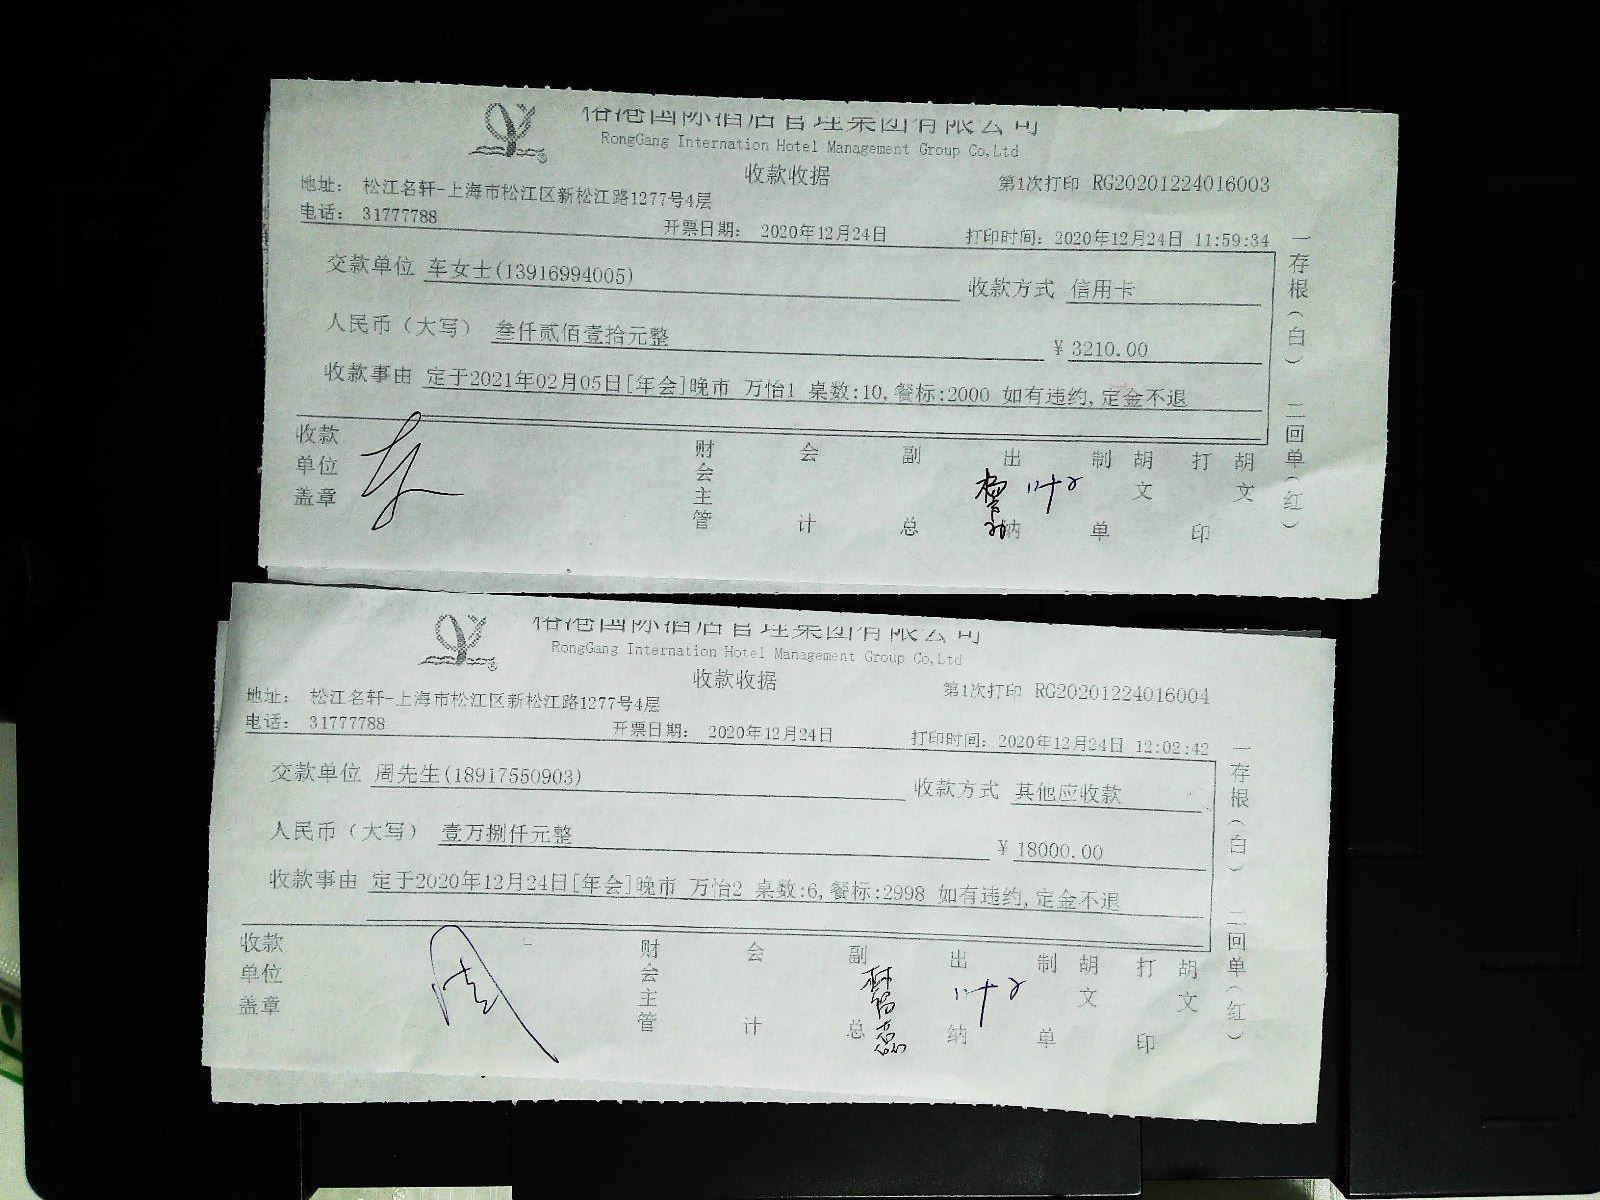 裕港国际酒店管理集团有限公司
RongGang Internation Hotel Management Group Co,Ltd
收款收据
第1次打印 RG20201224016003
地址: 松江名轩-上海市松江区新松江路1277号4层
电话: 31777788
开票日期: 2020年12月24日
打印时间: 2020年12月24日 11:59:34
交款单位 车女士(13916994005)
收款方式 信用卡
人民币(大写) 叁仟贰佰壹拾元整
¥ 3210.00
收款事由 定于2021年02月05日[年会]晚市 万怡1 桌数:10,餐标:2000 如有违约,定金不退
收款单位盖章
财会主管
会计
副总
出纳
制单
胡文
打印
胡文
一存根(白)
二回单(红)
裕港国际酒店管理集团有限公司
RongGang Internation Hotel Management Group Co,Ltd
收款收据
第1次打印 RG20201224016004
地址: 松江名轩-上海市松江区新松江路1277号4层
电话: 31777788
开票日期: 2020年12月24日
打印时间: 2020年12月24日 12:02:42
交款单位 周先生(18917550903)
收款方式 其他应收款
人民币(大写) 壹万捌仟元整
¥ 18000.00
收款事由 定于2020年12月24日[年会]晚市 万怡2 桌数:6,餐标:2998 如有违约,定金不退
收款单位盖章
周
财会主管
会计
副总
出纳
制单
胡文
打印
胡文
一存根(白)
二回单(红)